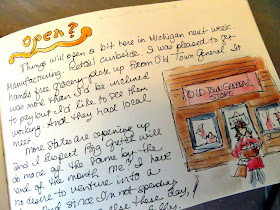 open?
Things will open a bit here in Michigan next week
Manufacturing. Retail curbside. I was pleased to get
hands free grocery pick up from Old Town General. It
was more than I'd be inclined
to pay but I'd like to see them
working. And they had local
meat.
More states are opening up
and I suspect Big Gretch will
do more of the same by the
end of the month. I have
no desire to venture into a
And since I'm not spending
else these days,
OLD TOWN GENERAL
STORE